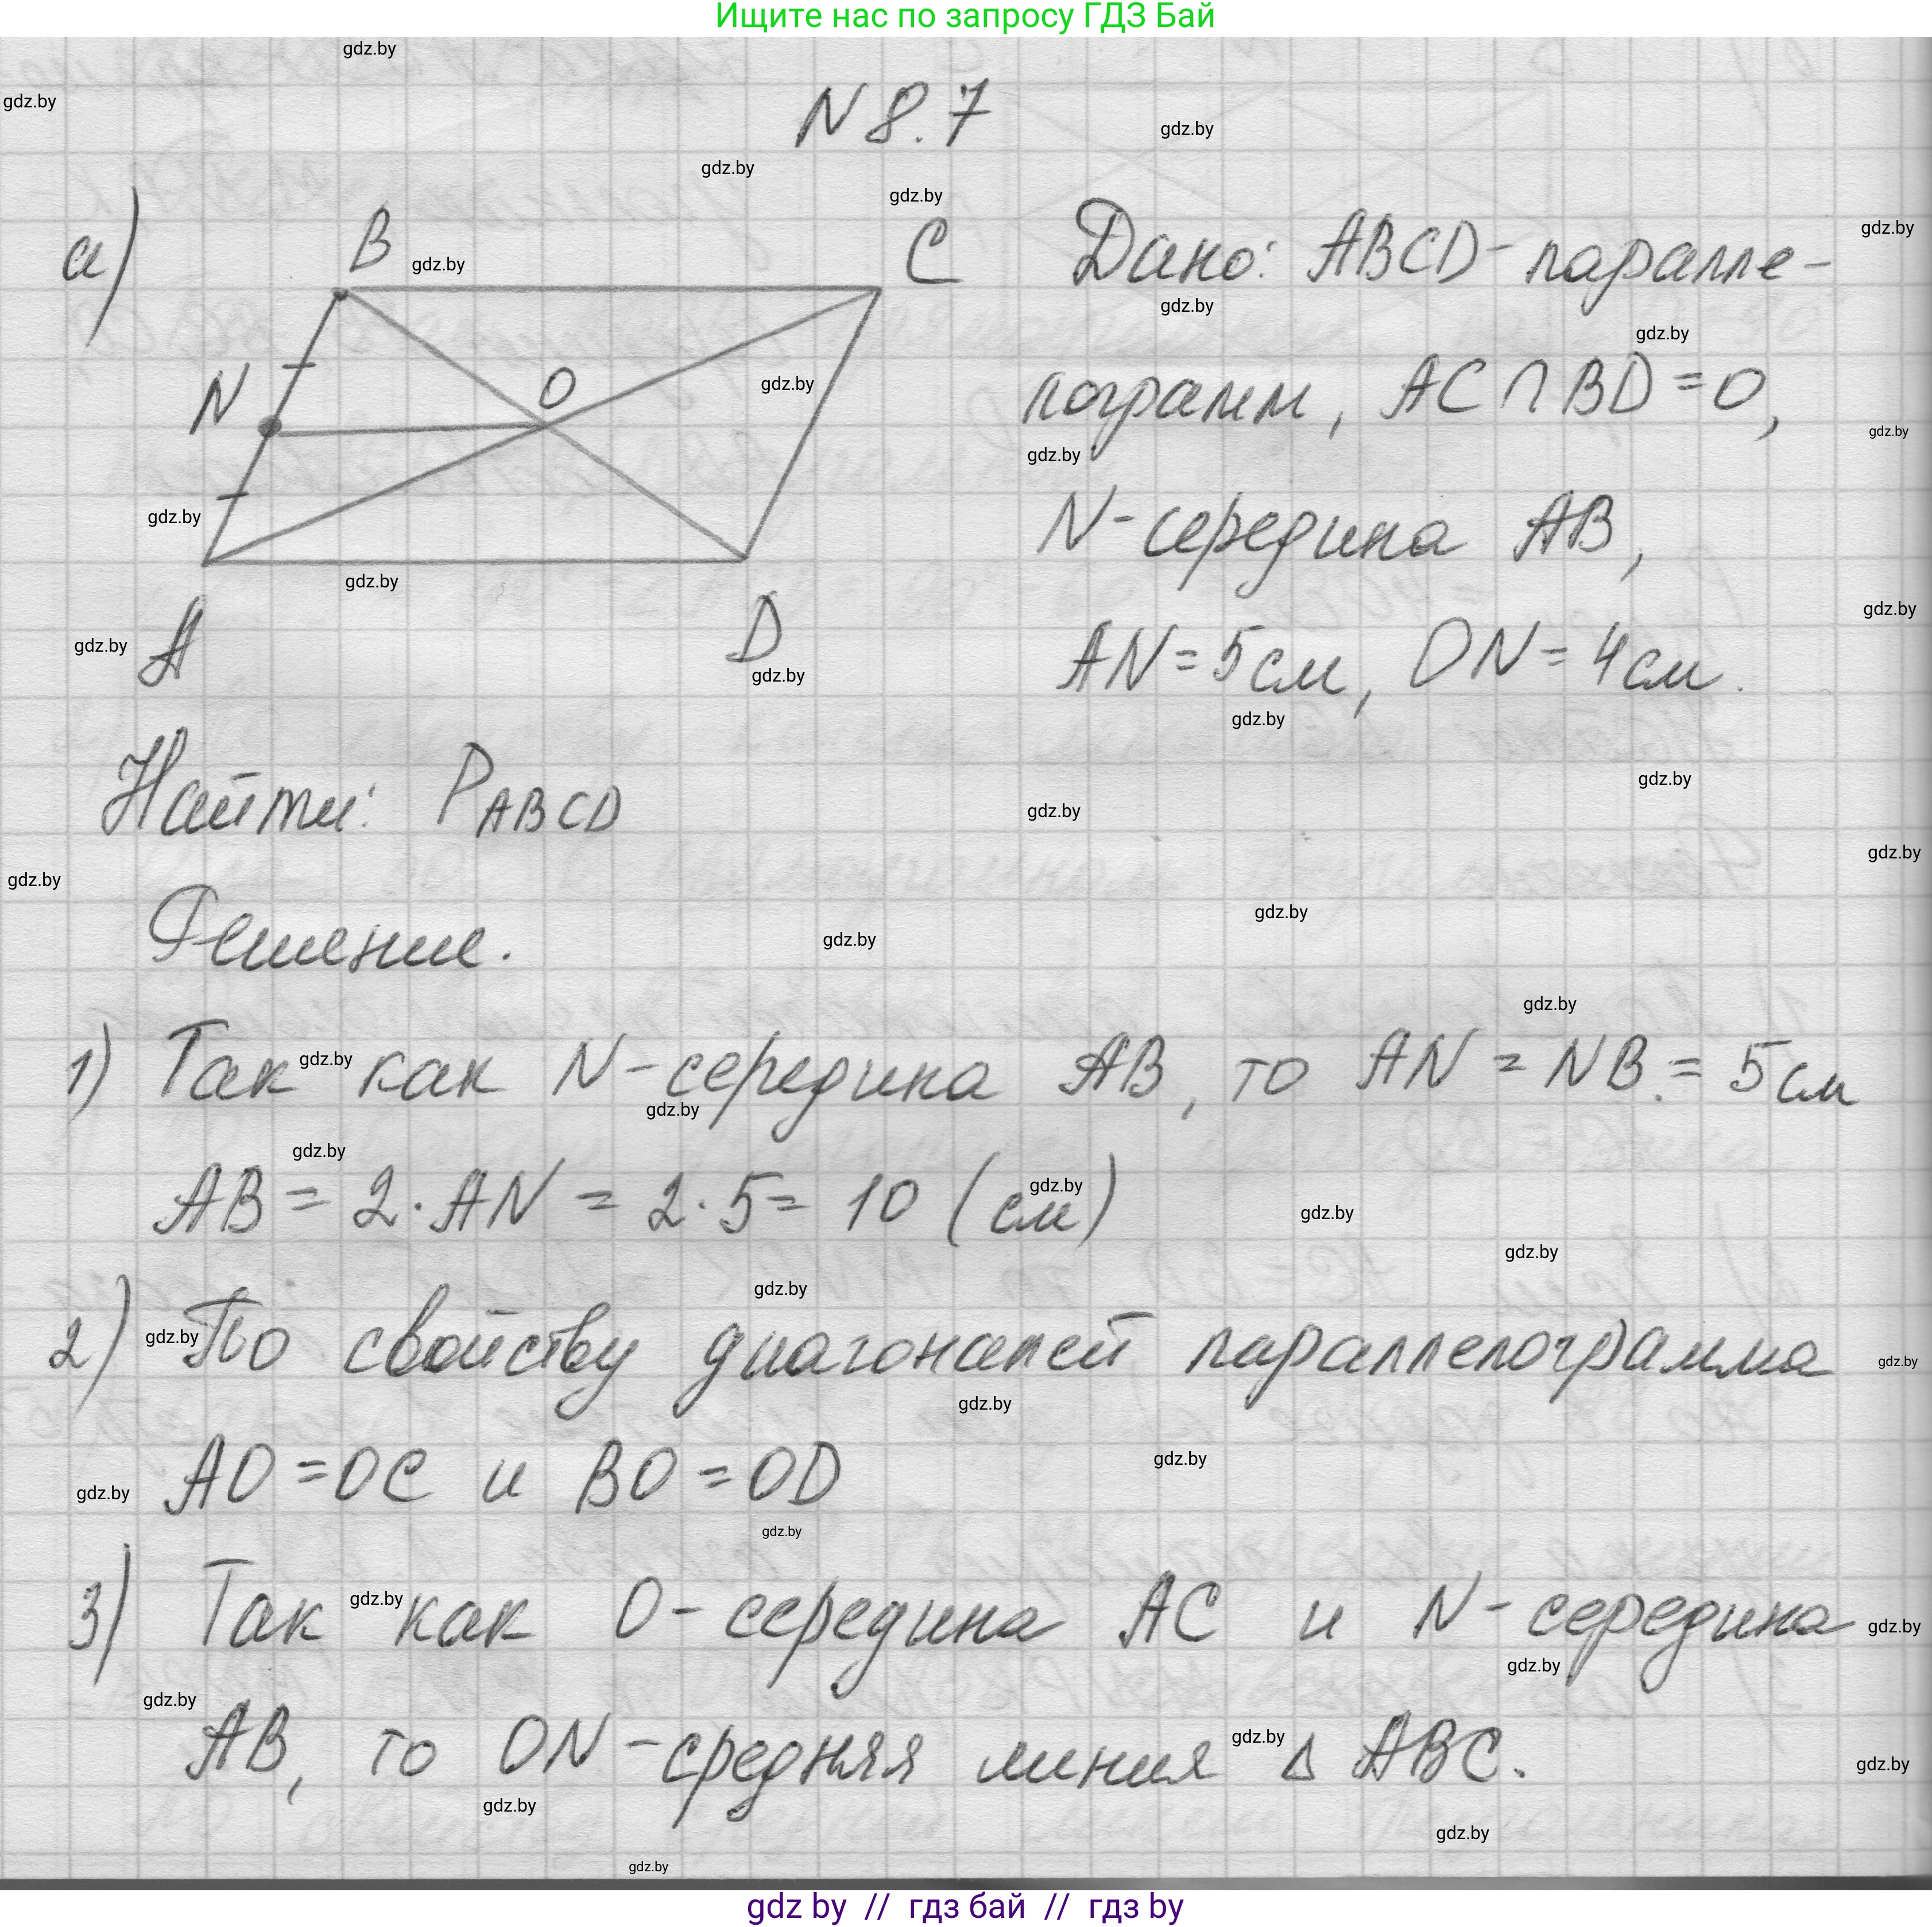 Ищите нас по запросу ГДЗ Бай
N 8.7
а)
B
C
N
O
A
D
Дано: ABCD - паралле-
лограмм, AC ∩ BD = O,
N - середина AB,
AN = 5 см, ON = 4 см.
Найти: P ABCD
Решение.
1) Так как N - середина AB, то AN = NB. = 5 см
AB = 2 · AN = 2 · 5 = 10 (см)
2) По свойству диагоналей параллелограмма
AO = OC и BO = OD
3) Так как O - середина AC и N - середина
AB, то ON - средняя линия Δ ABC.
gdz by // гдз бай // гдз by